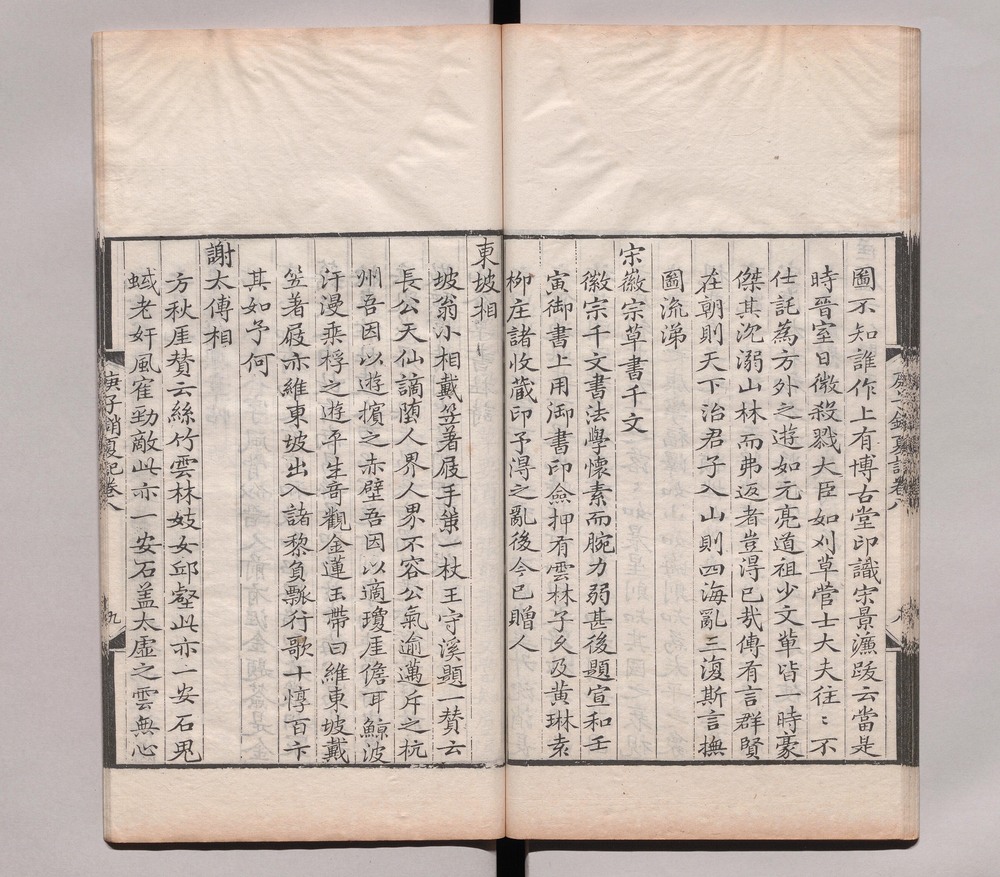 圖不知誰作上有博古堂印識宋景濂跋云當是
時晉室日微殺戮大臣如刈草菅士大夫往〻不
仕託為方外之遊如元亮道祖少文軰皆一時豪
傑其沉溺山林而弗返者豈得已哉傳有言群賢
在朝則天下治君子入山則四海亂三復斯言撫
圖流涕
宋徽宗草書千文
徽宗千文書法學懷素而腕力弱甚後題宣和壬
寅御書上用御書印僉押有雲林子夂及黄琳袁
柳庄諸收蔵印予淂之亂後今已贈人
東坡相
坡翁小相戴笠著屐手策一杖王守溪題一賛云
長公天仙謫堕人界人界不容公氣逾邁斥之杭
州吾因以遊擯之赤壁吾因以適瓊崖儋耳鯨波
汗漫乘桴之遊平生竒觀金蓮玉帶曰維東坡戴
笠著屐亦維東坡出入諸黎負瓢行歌十惇百卞
其如予何
謝太傅相
方秋厓賛云絲竹雲林妓女邱壑此亦一安石鬼
蜮老奸風寉勁敵此亦一安石盖太虛之雲無心
庚子銷夏記卷八
九